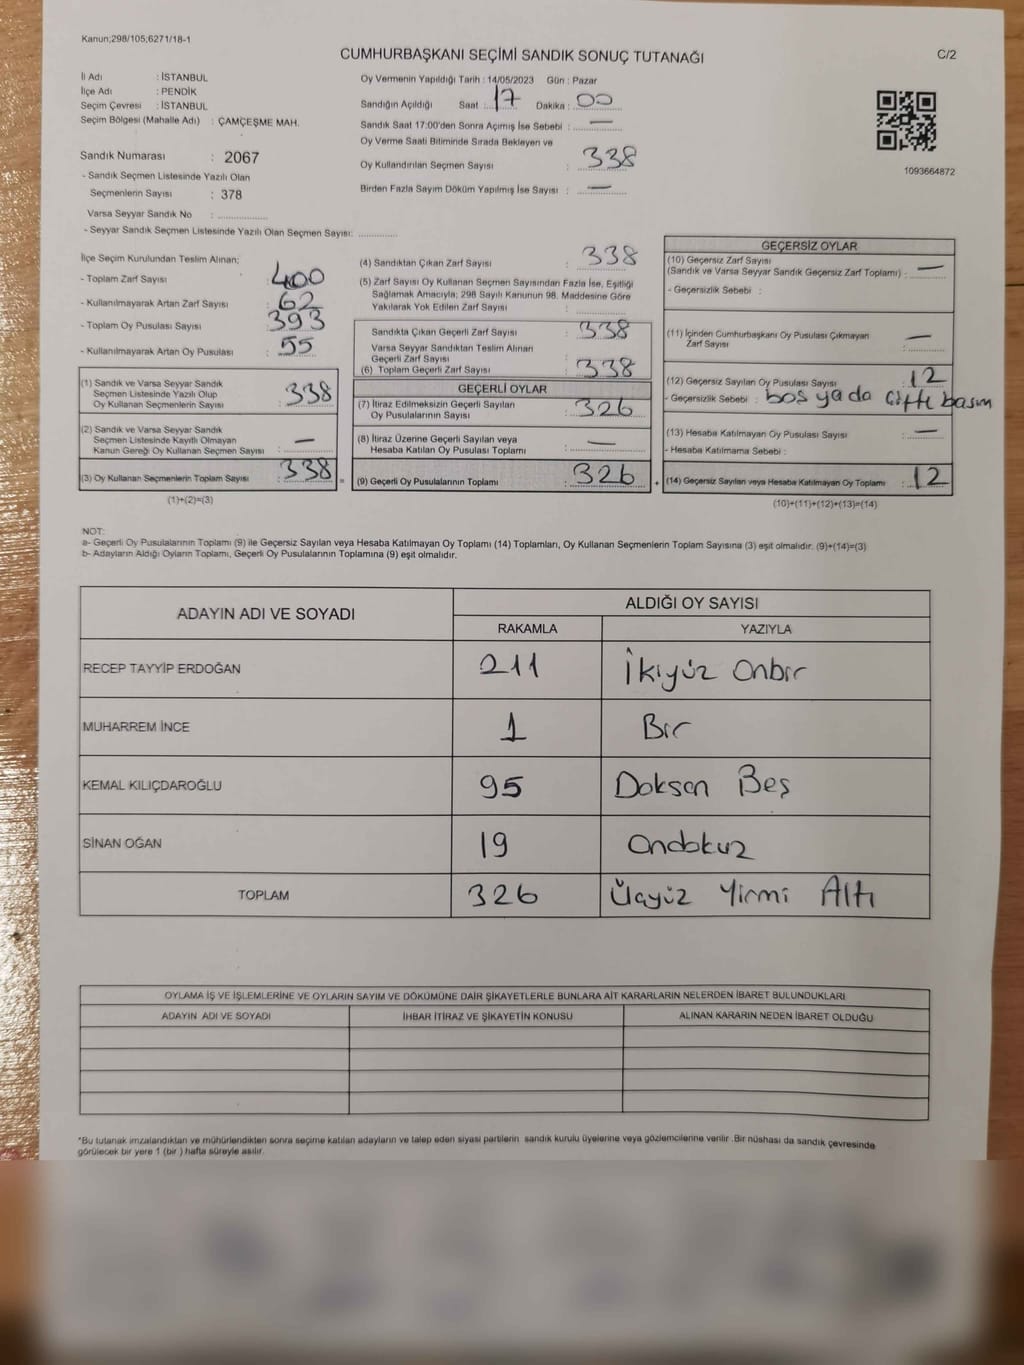 Kanun;298/105;6271/18-1
CUMHURBAŞKANI SEÇİMİ SANDIK SONUÇ TUTANAĞI
C/2
İl Adı : İSTANBUL
İlçe Adı : PENDİK
Seçim Çevresi : İSTANBUL
Seçim Bölgesi (Mahalle Adı) : ÇAMÇEŞME MAH.
Sandık Numarası : 2067
- Sandık Seçmen Listesinde Yazılı Olan
Seçmenlerin Sayısı : 378
Varsa Seyyar Sandık No : ..............
- Seyyar Sandık Seçmen Listesinde Yazılı Olan Seçmen Sayısı: ............
Oy Vermenin Yapıldığı Tarih : 14/05/2023 Gün : Pazar
Sandığın Açıldığı Saat : 17 Dakika : 00
Sandık Saat 17:00'den Sonra Açımış İse Sebebi : —
Oy Verme Saati Bitiminde Sırada Bekleyen ve
Oy Kullandırılan Seçmen Sayısı : 338
Birden Fazla Sayım Döküm Yapılmış İse Sayısı : —
1093664872
İlçe Seçim Kurulundan Teslim Alınan;
- Toplam Zarf Sayısı : 400
- Kullanılmayarak Artan Zarf Sayısı : 62
- Toplam Oy Pusulası Sayısı : 393
- Kullanılmayarak Artan Oy Pusulası : 55
(1) Sandık ve Varsa Seyyar Sandık
Seçmen Listesinde Yazılı Olup
Oy Kullanan Seçmenlerin Sayısı : 338
(2) Sandık ve Varsa Seyyar Sandık
Seçmen Listesinde Kayıtlı Olmayan
Kanun Gereği Oy Kullanan Seçmen Sayısı : —
(3) Oy Kullanan Seçmenlerin Toplam Sayısı : 338
(1)+(2)=(3)
(4) Sandıktan Çıkan Zarf Sayısı : 338
(5) Zarf Sayısı Oy Kullanan Seçmen Sayısından Fazla İse, Eşitliği
Sağlamak Amacıyla; 298 Sayılı Kanunun 98. Maddesine Göre
Yakılarak Yok Edilen Zarf Sayısı :
Sandıkta Çıkan Geçerli Zarf Sayısı : 338
Varsa Seyyar Sandıktan Teslim Alınan
Geçerli Zarf Sayısı :
(6) Toplam Geçerli Zarf Sayısı : 338
GEÇERLİ OYLAR
(7) İtiraz Edilmeksizin Geçerli Sayılan
Oy Pusulalarının Sayısı : 326
(8) İtiraz Üzerine Geçerli Sayılan veya
Hesaba Katılan Oy Pusulası Toplamı : —
(9) Geçerli Oy Pusulalarının Toplamı : 326
GEÇERSİZ OYLAR
(10) Geçersiz Zarf Sayısı
(Sandık ve Varsa Seyyar Sandık Geçersiz Zarf Toplamı) : —
- Geçersizlik Sebebi :
(11) İçinden Cumhurbaşkanı Oy Pusulası Çıkmayan
Zarf Sayısı : —
(12) Geçersiz Sayılan Oy Pusulası Sayısı : 12
- Geçersizlik Sebebi : boş yada çift basım
(13) Hesaba Katılmayan Oy Pusulası Sayısı : —
- Hesaba Katılmama Sebebi :
(14) Geçersiz Sayılan veya Hesaba Katılmayan Oy Toplamı : 12
(10)+(11)+(12)+(13)=(14)
NOT:
a- Geçerli Oy Pusulalarının Toplamı (9) ile Geçersiz Sayılan veya Hesaba Katılmayan Oy Toplamı (14) Toplamları, Oy Kullanan Seçmenlerin Toplam Sayısına (3) eşit olmalıdır. (9)+(14)=(3)
b- Adayların Aldığı Oyların Toplamı, Geçerli Oy Pusulalarının Toplamına (9) eşit olmalıdır.
ADAYIN ADI VE SOYADI ALDIĞI OY SAYISI
RAKAMLA YAZIYLA
RECEP TAYYİP ERDOĞAN 211 İkiyüz Onbir
MUHARREM İNCE 1 Bir
KEMAL KILIÇDAROĞLU 95 Doksan Beş
SİNAN OĞAN 19 Ondokuz
TOPLAM 326 Üçyüz Yirmi Altı
OYLAMA İŞ VE İŞLEMLERİNE VE OYLARIN SAYIM VE DÖKÜMÜNE DAİR ŞİKAYETLERLE BUNLARA AİT KARARLARIN NELERDEN İBARET BULUNDUKLARI
ADAYIN ADI VE SOYADI İHBAR İTİRAZ VE ŞİKAYETİN KONUSU ALINAN KARARIN NEDEN İBARET OLDUĞU
*Bu tutanak imzalandıktan ve mühürlendikten sonra seçime katılan adayların ve talep eden siyasi partilerin sandık kurulu üyelerine veya gözlemcilerine verilir .Bir nüshası da sandık çevresinde
görülecek bir yere 1 (bir ) hafta süreyle asılır.